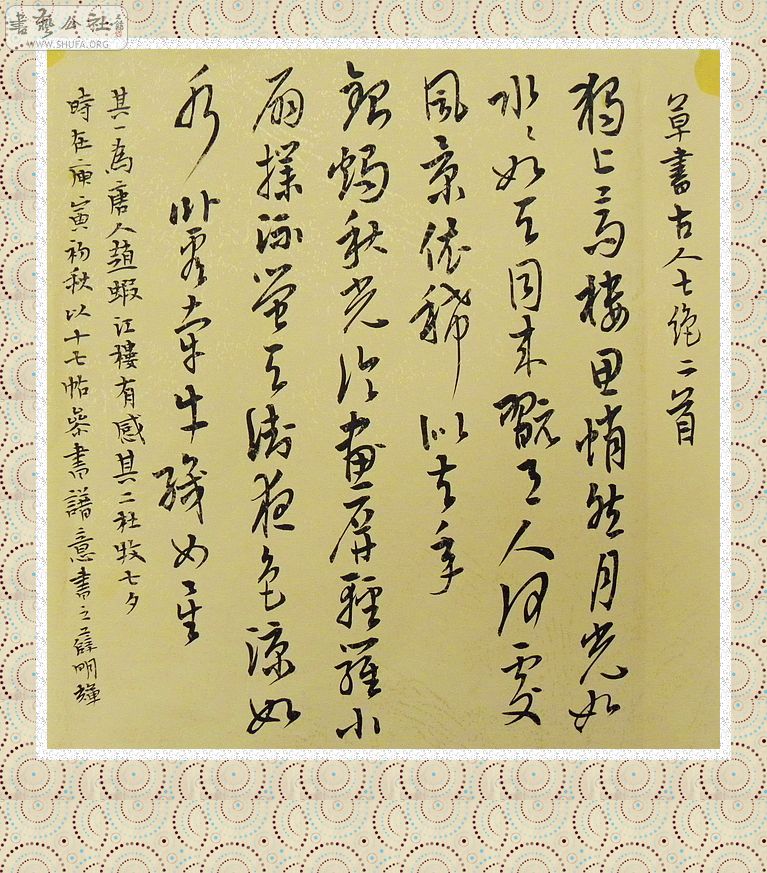 書藝公社
WWW.SHUFA.ORG
草書古人七絶二首
獨上高樓思悄然月光如
水〻如天同来翫月人何處
風景依稀似去年
銀燭秋光冷畫屏輕羅小
扇撲流螢天街夜色涼如
水卧看牽牛織女星
其一為唐人趙蝦江樓有感其二杜牧七夕
時在庚寅初秋以十七帖叅書譜意書之薛明輝